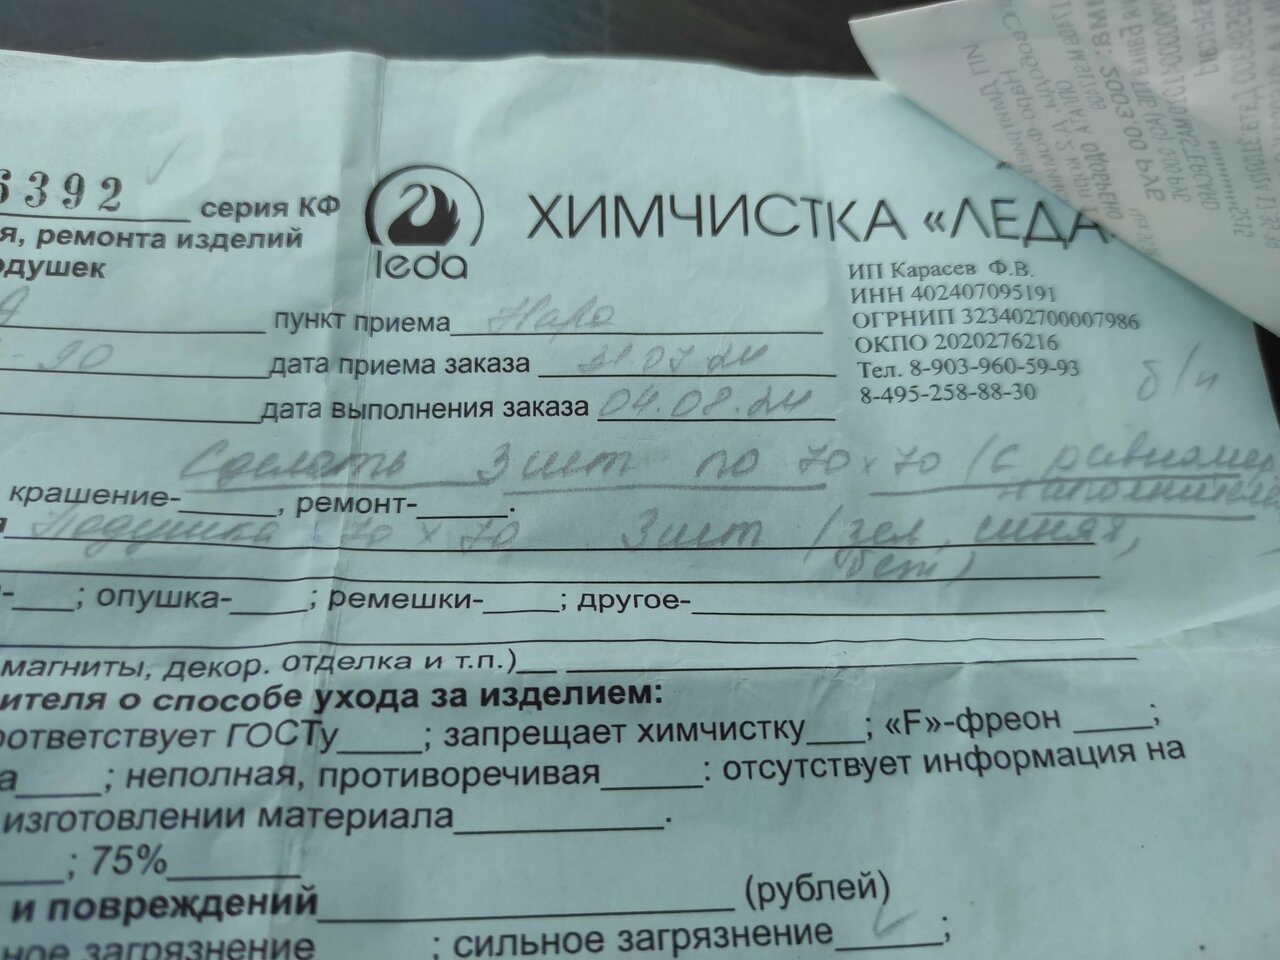 6392 серия КФ
я, ремонта изделий
одушек
leda
ХИМЧИСТКА «ЛЕДА
ИП Карасев Ф.В.
ИНН 402407095191
ОГРНИП 323402700007986
ОКПО 2020276216
Тел. 8-903-960-59-93
8-495-258-88-30
б/н
пункт приема Наро
90 дата приема заказа 31.07.24
дата выполнения заказа 04.08.24
Сделать 3 шт по 70 х 70 (с равномер
наполнителе
крашение- , ремонт- .
Подушка 70 х 70 3 шт (зел, синяя,
беж)
; опушка- ; ремешки- ; другое-
магниты, декор. отделка и т.п.)
ителя о способе ухода за изделием:
оответствует ГОСТу ; запрещает химчистку ; «F»-фреон ;
а ; неполная, противоречивая : отсутствует информация на
изготовлении материала .
; 75%
и повреждений (рублей)
ное загрязнение ; сильное загрязнение ✓ ;